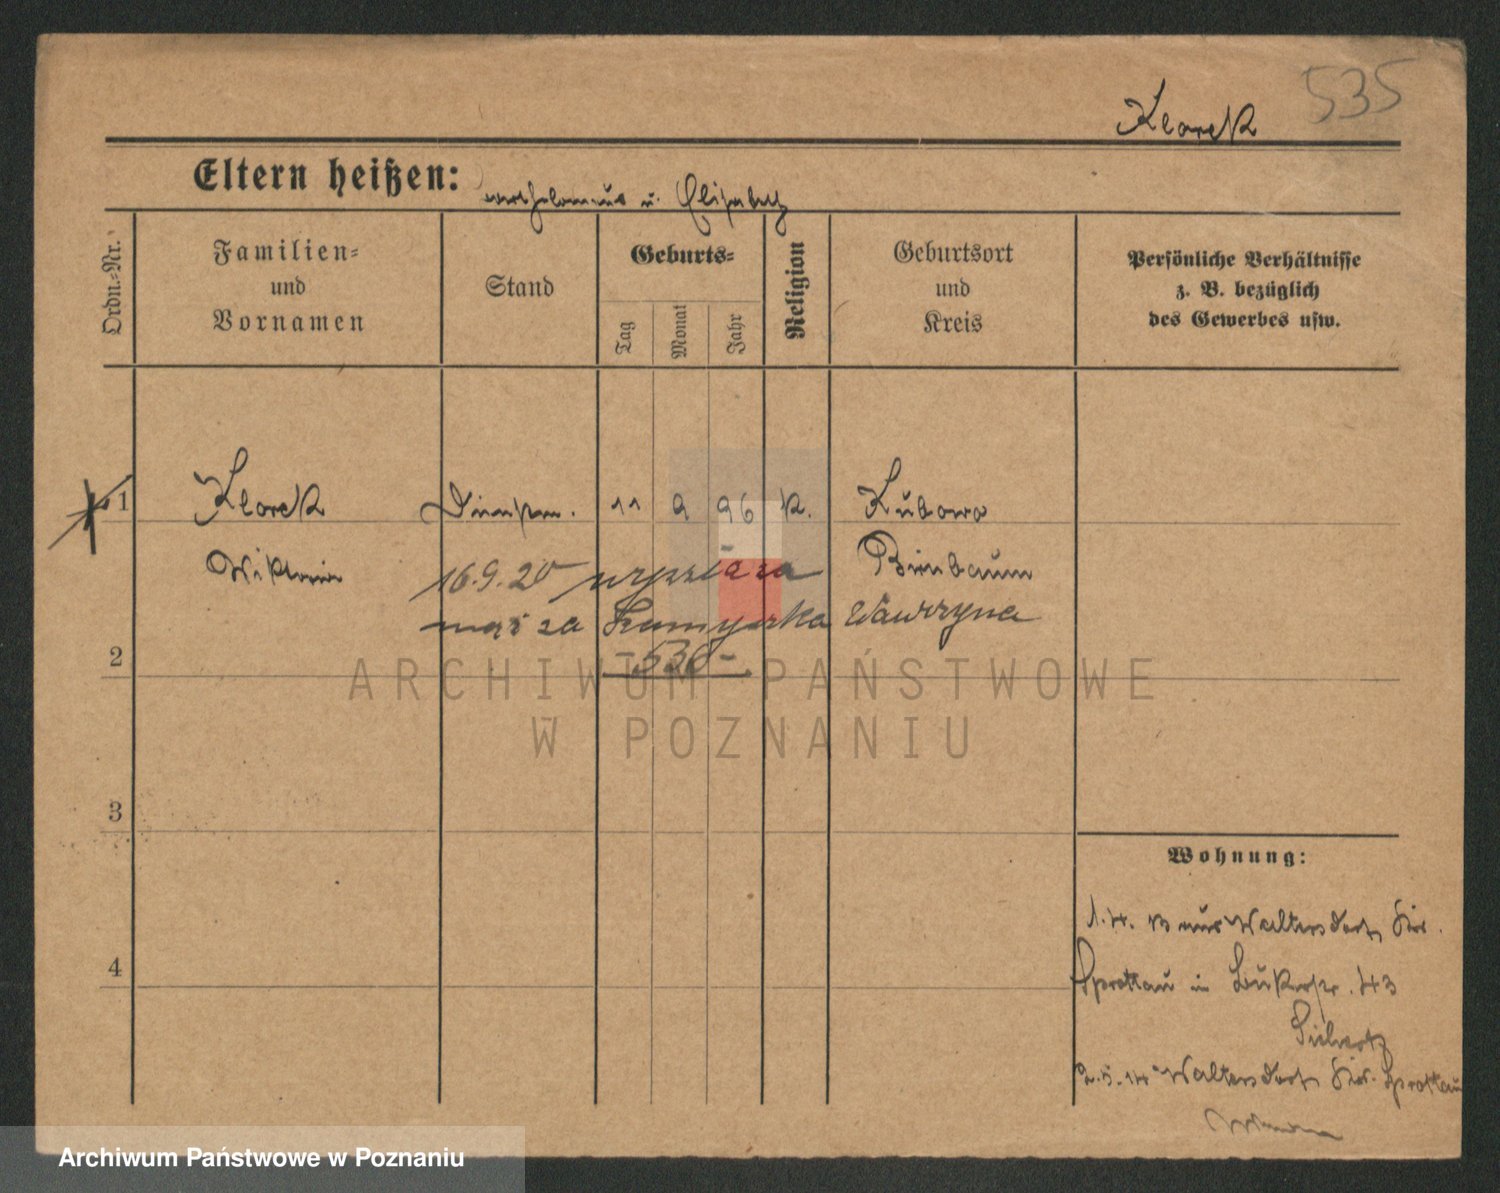 535
Klorek
Eltern heißen: u. Elisabeth
Ordn.-Nr.
Familien-
und
Vornamen
Stand
Geburts-
Tag
Monat
Jahr
Religion
Geburtsort
und
Kreis
Persönliche Verhältnisse
z. B. bezüglich
des Gewerbes usw.
1 Klorek 11 9 96 k. Lubowo
16.9.20 wyszła za Birnbaum
mąż za Wawrzyna
-536-
2
ARCHIWUM PAŃSTWOWE
W POZNANIU
3
4
Wohnung:
1.4. 13 aus Waltersdorf Krs.
Sprottau in 43
2.5.14 Waltersdorf Krs. Sprottau
Archiwum Państwowe w Poznaniu